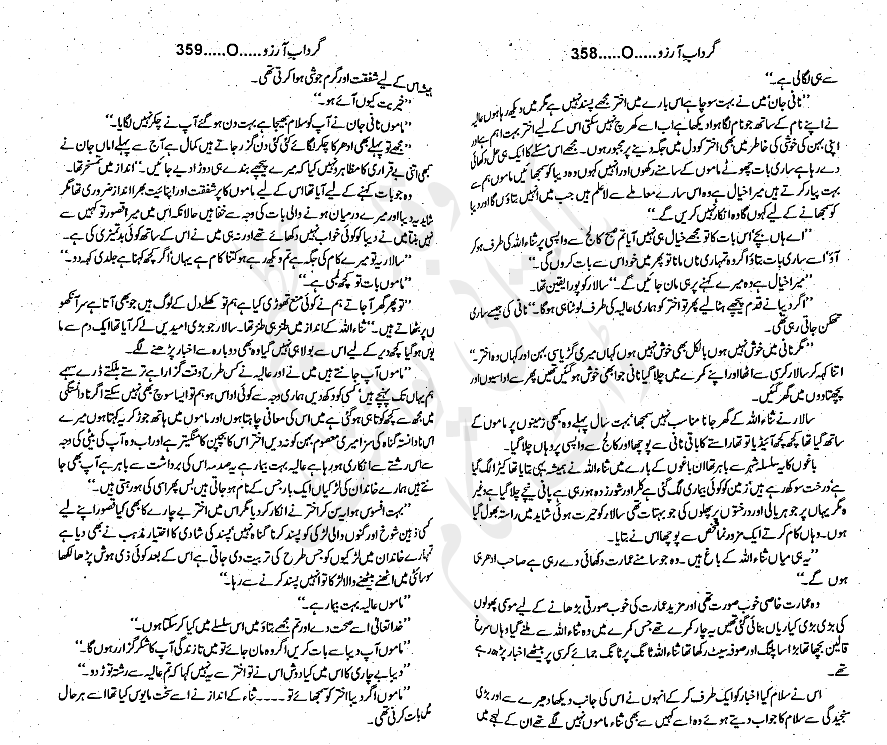 گرداب آرزو.....O.....358
سے ہی لگالی ہے۔“
”نانی جان میں نے بہت سوچا ہے اس بارے میں اختر مجھے پسند نہیں ہے مگر میں دیکھ رہا ہوں عالیہ
نے اپنے نام کے ساتھ جو نام لگا ہوا دیکھا ہے اب اسے کھرچ نہیں سکتی اس کے لیے اختر بہت اہم ہے اور
اپنی بہن کی خوشی کی خاطر میں بھی اختر کو دل میں جگہ دینے پر مجبور ہوں۔ مجھے اس مسئلے کا ایک ہی حل دکھائی
دے رہا ہے ساری بات چھوٹے ماموں کے سامنے رکھوں اور انہیں کہوں وہ دیبا کو سمجھائیں ماموں ہم سے
بہت پیار کرتے ہیں میرا خیال ہے وہ اس سارے معاملے سے لاعلم ہیں جب میں انہیں بتاؤں گا اور دیبا
کو سمجھانے کے لیے کہوں گا وہ انکار نہیں کریں گے۔“
”اے ہاں بچے اس بات کا تو مجھے خیال ہی نہیں آیا تم صبح کالج سے واپسی پر ثناء اللہ کی طرف ہو کر
آؤ اسے ساری بات بتاؤ اگر وہ تمہاری ناں مانا تو پھر میں خود اس سے بات کروں گی۔“
”میرا خیال ہے وہ میرے کہنے پر ہی مان جائیں گے۔“ سالار کو پورا یقین تھا۔
”اگر دیبا نے قدم پیچھے ہٹا لیے پھر تو اختر کو ہماری عالیہ کی طرف لوٹنا ہی ہوگا۔“ نانی کی جیسے ساری
تھکن جاتی رہی تھی۔
”مگر نانی میں خوش نہیں ہوں بالکل بھی خوش نہیں ہوں کہاں میری گڑیا سی بہن اور کہاں وہ اختر۔“
اتنا کہہ کر سالار کرسی سے اٹھا اور اپنے کمرے میں چلا گیا نانی جو ابھی خوش ہو گئیں تھیں پھر سے اداسیوں اور
پچھتاووں میں گھر گئیں۔
سالار نے ثناء اللہ کے گھر جانا مناسب نہیں سمجھا‘ بہت سال پہلے وہ کبھی زمینوں پر ماموں کے
ساتھ گیا تھا کچھ کچھ آئیڈیا تو تھا راستے کا باقی نانی سے پوچھا اور کالج سے واپسی پر وہاں چلا گیا۔
باغوں کا یہ سلسلہ شہر سے باہر تھا ان باغوں کے بارے میں ثناء اللہ نے ہمیشہ یہی بتایا تھا کیڑا لگ گیا
ہے درخت سوکھ رہے ہیں‘ زمین کو کوئی بیماری لگ گئی ہے کلر اور شور زدہ ہو رہی ہے پانی نیچے چلا گیا ہے وغیر
ہ مگر یہاں پر جو ہریالی اور درختوں پر پھلوں کی جو بہتات تھی سالار کو حیرت ہوئی شاید میں راستہ بھول گیا
ہوں۔ وہاں کام کرتے ایک مزور نما شخص سے پوچھا اس نے بتایا۔
”یہ ہی میاں ثناء اللہ کے باغ ہیں۔ وہ جو سامنے عمارت دکھائی دے رہی ہے صاحب ادھر ہی
ہوں گے۔“
وہ عمارت خاصی خوب صورت تھی اور مزید عمارت کی خوب صورتی بڑھانے کے لیے موسمی پھولوں
کی بڑی بڑی کیاریاں بنائی گئی تھیں یہ چار کمرے تھے جس کمرے میں وہ ثناء اللہ سے ملنے گیا وہاں سرخ
قالین بچھا تھا بڑا سا پلنگ اور صوفہ سیٹ رکھا تھا ثناء اللہ ٹانگ پر ٹانگ جمائے کرسی پر بیٹھے اخبار پڑھ رہے
تھے۔
اس نے سلام کیا اخبار کو ایک طرف کر کے انہوں نے اس کی جانب دیکھا دھیرے سے اور بڑی
سنجیدگی سے سلام کا جواب دیتے ہوئے وہ اسے کہیں سے بھی ثناء ماموں نہیں لگے تھے ان کے لہجے میں
گرداب آرزو.....O.....359
ہمیشہ اس کے لیے شفقت اور گرم جوشی ہوا کرتی تھی۔
”خیریت کیوں آئے ہو۔“
”ماموں نانی جان نے آپ کو سلام بھیجا ہے بہت دن ہو گئے آپ نے چکر نہیں لگایا۔“
”مجھے تو پہلے بھی ادھر کا چکر لگائے کئی کئی دن گزر جاتے ہیں کمال ہے آج سے پہلے اماں جان نے
کبھی اتنی بے قراری کا مظاہرہ نہیں کیا کہ میرے پیچھے بندے ہی دوڑا دیے جائیں۔“ انداز میں تمسخر تھا۔
وہ جو بات کہنے کے لیے آیا تھا اس کے لیے ماموں کا پر شفقت اور اپنائیت بھرا انداز ضروری تھا مگر
شاید یہ دیبا اور میرے درمیان ہونے والی بات کی وجہ سے خفا ہیں حالانکہ اس میں میرا قصور تو کہیں سے
نہیں بنتا میں نے دیبا کو کوئی خواب نہیں دکھائے تھے اور نہ ہی میں نے اس کے ساتھ کوئی بدتمیزی کی ہے۔
”سالار یہ تو میرے کام کی جگہ ہے تم دیکھ رہے ہو کتنا کام ہے یہاں‘ اگر کچھ کہنا ہے جلدی کہہ دو۔“
”ماموں بات تو کچھ لمبی ہے۔“
”تو پھر گھر آ جاتے ہم نے کوئی منع تھوڑی کیا ہے ہم تو کھلے دل کے لوگ ہیں جو بھی آتا ہے سر آنکھو
ں پر بٹھاتے ہیں۔“ ثناء اللہ کے انداز میں طنز ہی طنز تھا۔ سالار جو بڑی امیدیں لے کر آیا تھا ایک دم سے ما
یوس ہو گیا کچھ دیر کے لیے اس سے بولا ہی نہیں گیا وہ بھی دوبارہ سے اخبار پڑھنے لگے۔
”ماموں آپ جانتے ہیں میں نے اور عالیہ نے کس طرح وقت گزارا ہے ترستے بلکتے ڈرے سہمے
ہم یہاں تک پہنچے ہیں‘ کسی کو دکھ دیں ہماری وجہ سے کوئی اداس ہو ہم تو ایسا سوچ بھی نہیں سکتے اگر نادانستگی
میں مجھ سے کچھ کوتاہی ہو گئی ہے میں اس کی معافی چاہتا ہوں اور ماموں میں ہاتھ جوڑ کر یہ کہتا ہوں میرے
اس نادانستہ گناہ کی سزا میری معصوم بہن کو نہ دیں‘ اختر اس کا بچپن کا منگیتر ہے اور اب وہ آپ کی بیٹی کی وجہ
سے اس رشتے سے انکاری ہو رہا ہے عالیہ بہت بیمار ہے یہ صدمہ اس کی برداشت سے باہر ہے آپ بھی جا
نتے ہیں ہمارے خاندان کی لڑکیاں ایک بار جس کے نام ہو جاتی ہیں بس پھر اسی کی ہو رہتی ہیں۔“
”بہت افسوس ہوا یہ سن کر اختر نے انکار کر دیا مگر اس میں اختر بے چارے کا بھی کیا قصور اپنے لیے
کسی ذہین شوخ اور گنوں والی لڑکی کو پسند کرنا گناہ نہیں‘ پسند کی شادی کا اختیار مذہب نے بھی دیا ہے
تمہارے خاندان میں لڑکیوں کو جس طرح کی تربیت دی جاتی ہے اس کے بعد کوئی ذی ہوش پڑھا لکھا
سوسائٹی میں اٹھنے بیٹھنے والا لڑکا تو انہیں پسند کرنے سے رہا۔“
”ماموں عالیہ بہت بیمار ہے۔“
”خدا تعالیٰ اسے صحت دے اور تم مجھے بتاؤ میں اس سلسلے میں کیا کر سکتا ہوں۔“
”ماموں آپ دیبا سے بات کریں اگر وہ مان جائے تو میں تا زندگی آپ کا شکر گزار رہوں گا۔“
”دیبا بے چاری کا اس میں کیا دوش اس نے تو اختر سے یہ نہیں کہا کہ تم عالیہ سے رشتہ توڑ دو۔“
”ماموں اگر دیبا اختر کو سمجھائے تو۔۔۔۔ ثناء کے انداز نے اسے سخت مایوس کیا تھا اسے ہر حال
میں بات کرنی تھی۔